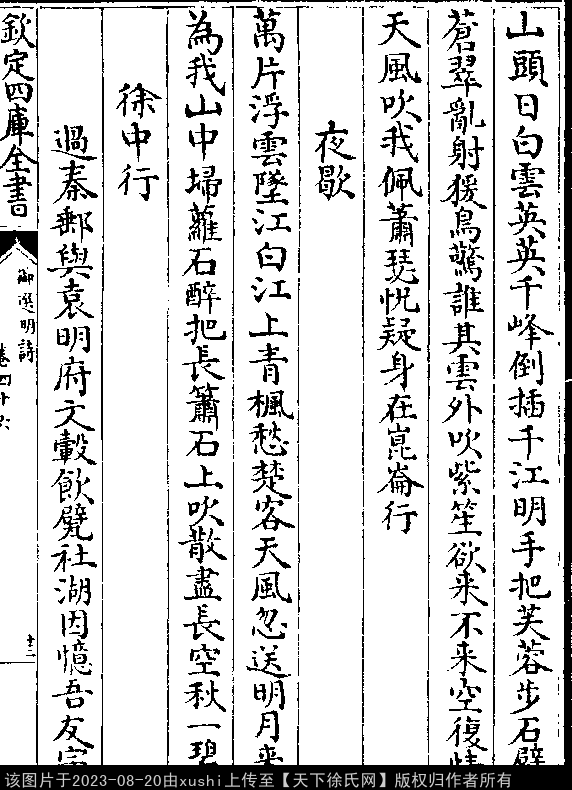 山頭日白雲英英千峰倒插千江明手把芙蓉步石壁
蒼翠亂射猨鳥驚誰其雲外吹紫笙欲来不来空復情
天風吹我佩蕭瑟怳疑身在崑崙行
夜歇
萬片浮雲墜江白江上青楓愁楚客天風忽送明月来
為我山中埽蘿石醉把長簫石上吹散盡長空秋一碧
徐中行
過秦郵與袁明府文轂飲甓社湖因憶吾友宗
欽定四庫全書
御選明詩
卷四十六
十二
该图片于2023-08-20由xushi上传至【天下徐氏网】版权归作者所有